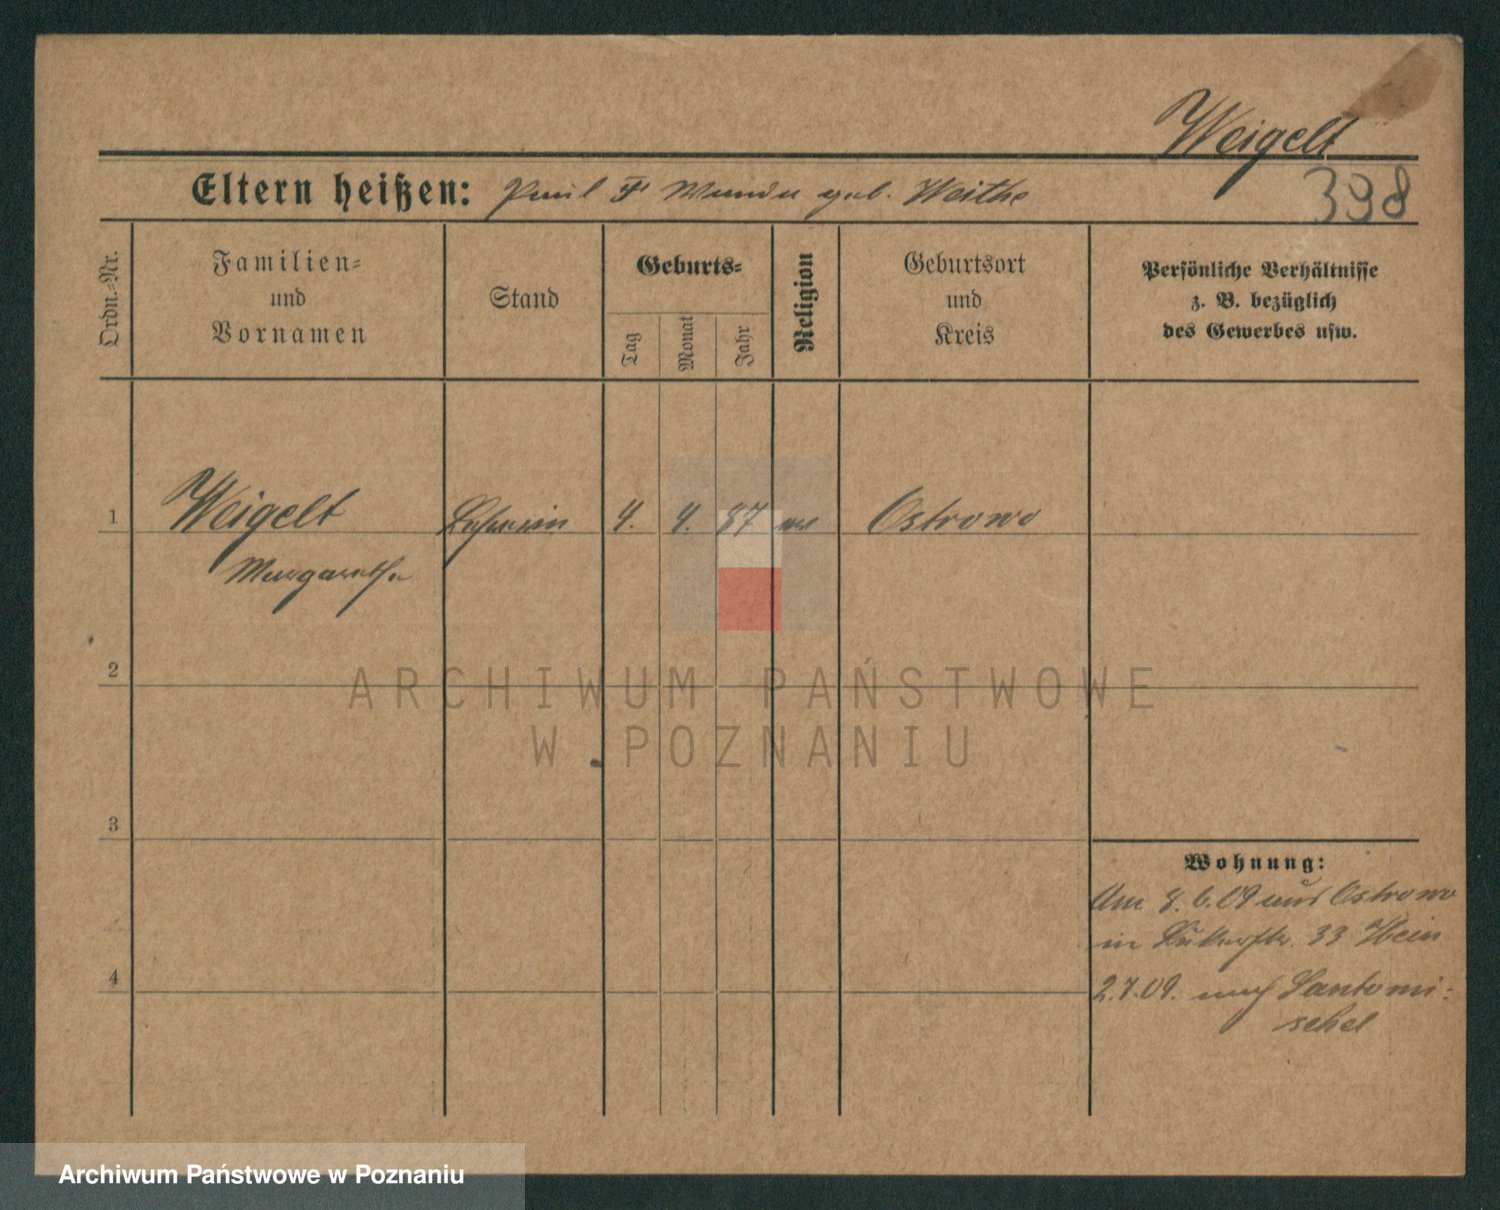 Weigelt
Eltern heißen: Paul geb. Weithe
398
Ordn.-Nr.
Familien-
und
Vornamen
Stand
Geburts-
Tag
Monat
Jahr
Religion
Geburtsort
und
Kreis
Persönliche Verhältnisse
z. B. bezüglich
des Gewerbes usw.
1 Weigelt Lehrerin 4. 4. 87 Ostrowo
Margarethe
2
3
4
ARCHIWUM PAŃSTWOWE
W POZNANIU
Wohnung:
Am 8.6.09 aus Ostrowo
in 33
2.7.09. nach Santomi-
schel
Archiwum Państwowe w Poznaniu